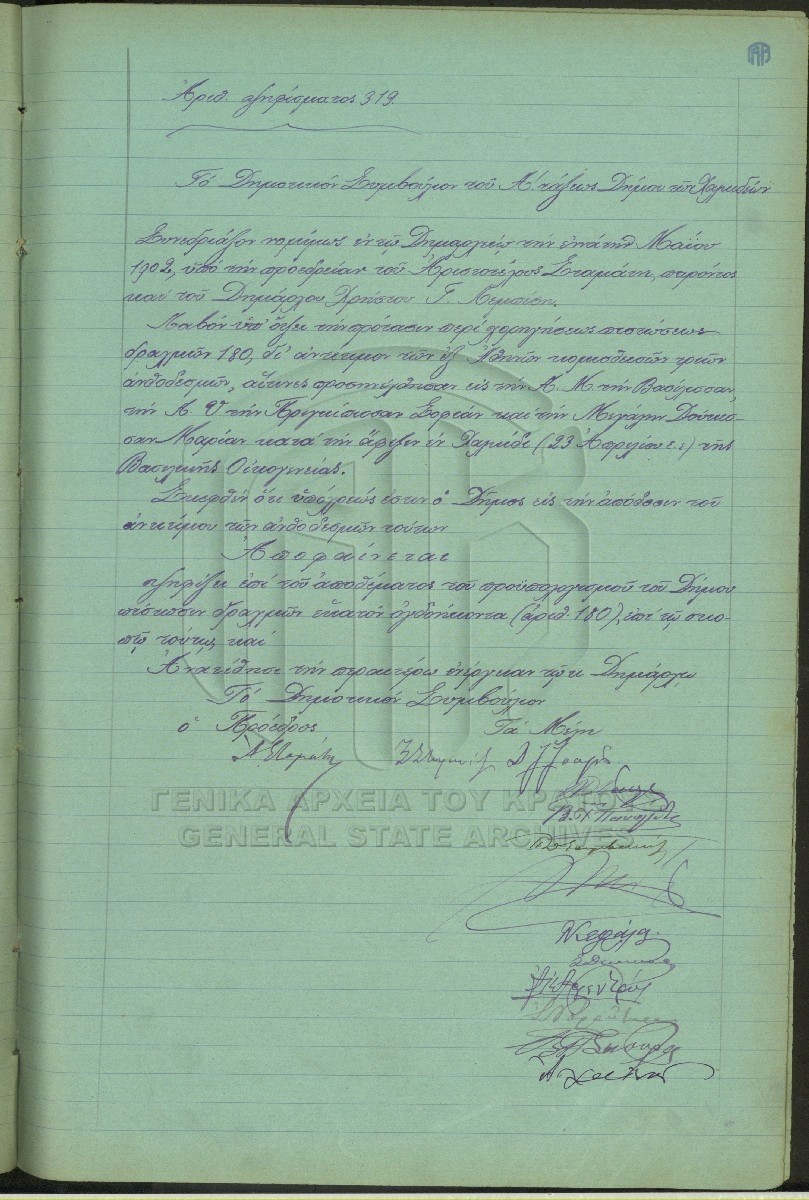 Ἀριθ. ψηφίσματος 319.
Τό Δημοτικόν Συμβούλιον τοῦ Α΄ τάξεως Δήμου τῶν Χαλκιδέων
Συνεδριάζον νομίμως ἐν τῷ Δημαρχείῳ τήν ἐνάτην Μαΐου
1902, ὑπό τήν προεδρείαν τοῦ Ἀριστοτέλους Σταμάτη, παρόντος
καί τοῦ Δημάρχου Χρήστου Γ.
Λαβόν ὑπ' ὄψει τήν πρότασιν περί χορηγήσεως πιστώσεως
δραχμῶν 180, δι' ἀντίτιμον τῶν ἐξ Ἀθηνῶν κομισθεισῶν τριῶν
ἀνθοδεσμῶν, αἵτινες προσηνέχθησαν εἰς τήν Α. Μ. τήν Βασίλισσαν,
τήν Α. Υ τήν Πριγκίπισσαν Σοφίαν καί τήν Μεγάλην Δούκισ-
σαν Μαρίαν κατά τήν ἄφιξιν ἐν Χαλκίδι (23 Ἀπριλίου ἔ.ἔ) τῆς
Βασιλικῆς Οἰκογενείας.
Σκεφθέν ὅτι ὑπόχρεώς ἐστιν ὁ Δῆμος εἰς τήν ἀπόδοσιν τοῦ
ἀντιτίμου τῶν ἀνθοδεσμῶν τούτων
Ἀποφαίνεται
ψηφίζει ἐπί τοῦ ἀποθέματος τοῦ προϋπολογισμοῦ τοῦ Δήμου
πίστωσιν δραχμῶν ἑκατόν ὀγδοήκοντα (ἀριθ. 180), ἐπί τῷ σκο-
πῷ τούτῳ, καί
Ἀνατίθησι τήν περαιτέρω ἐνέργειαν τῷ κ Δημάρχῳ
Τό Δημοτικόν Συμβούλιον
ὁ Πρόεδρος Τά Μέλη
Α Σταμάτης
ΓΕΝΙΚΑ ΑΡΧΕΙΑ ΤΟΥ ΚΡΑΤΟΥΣ
GENERAL STATE ARCHIVES